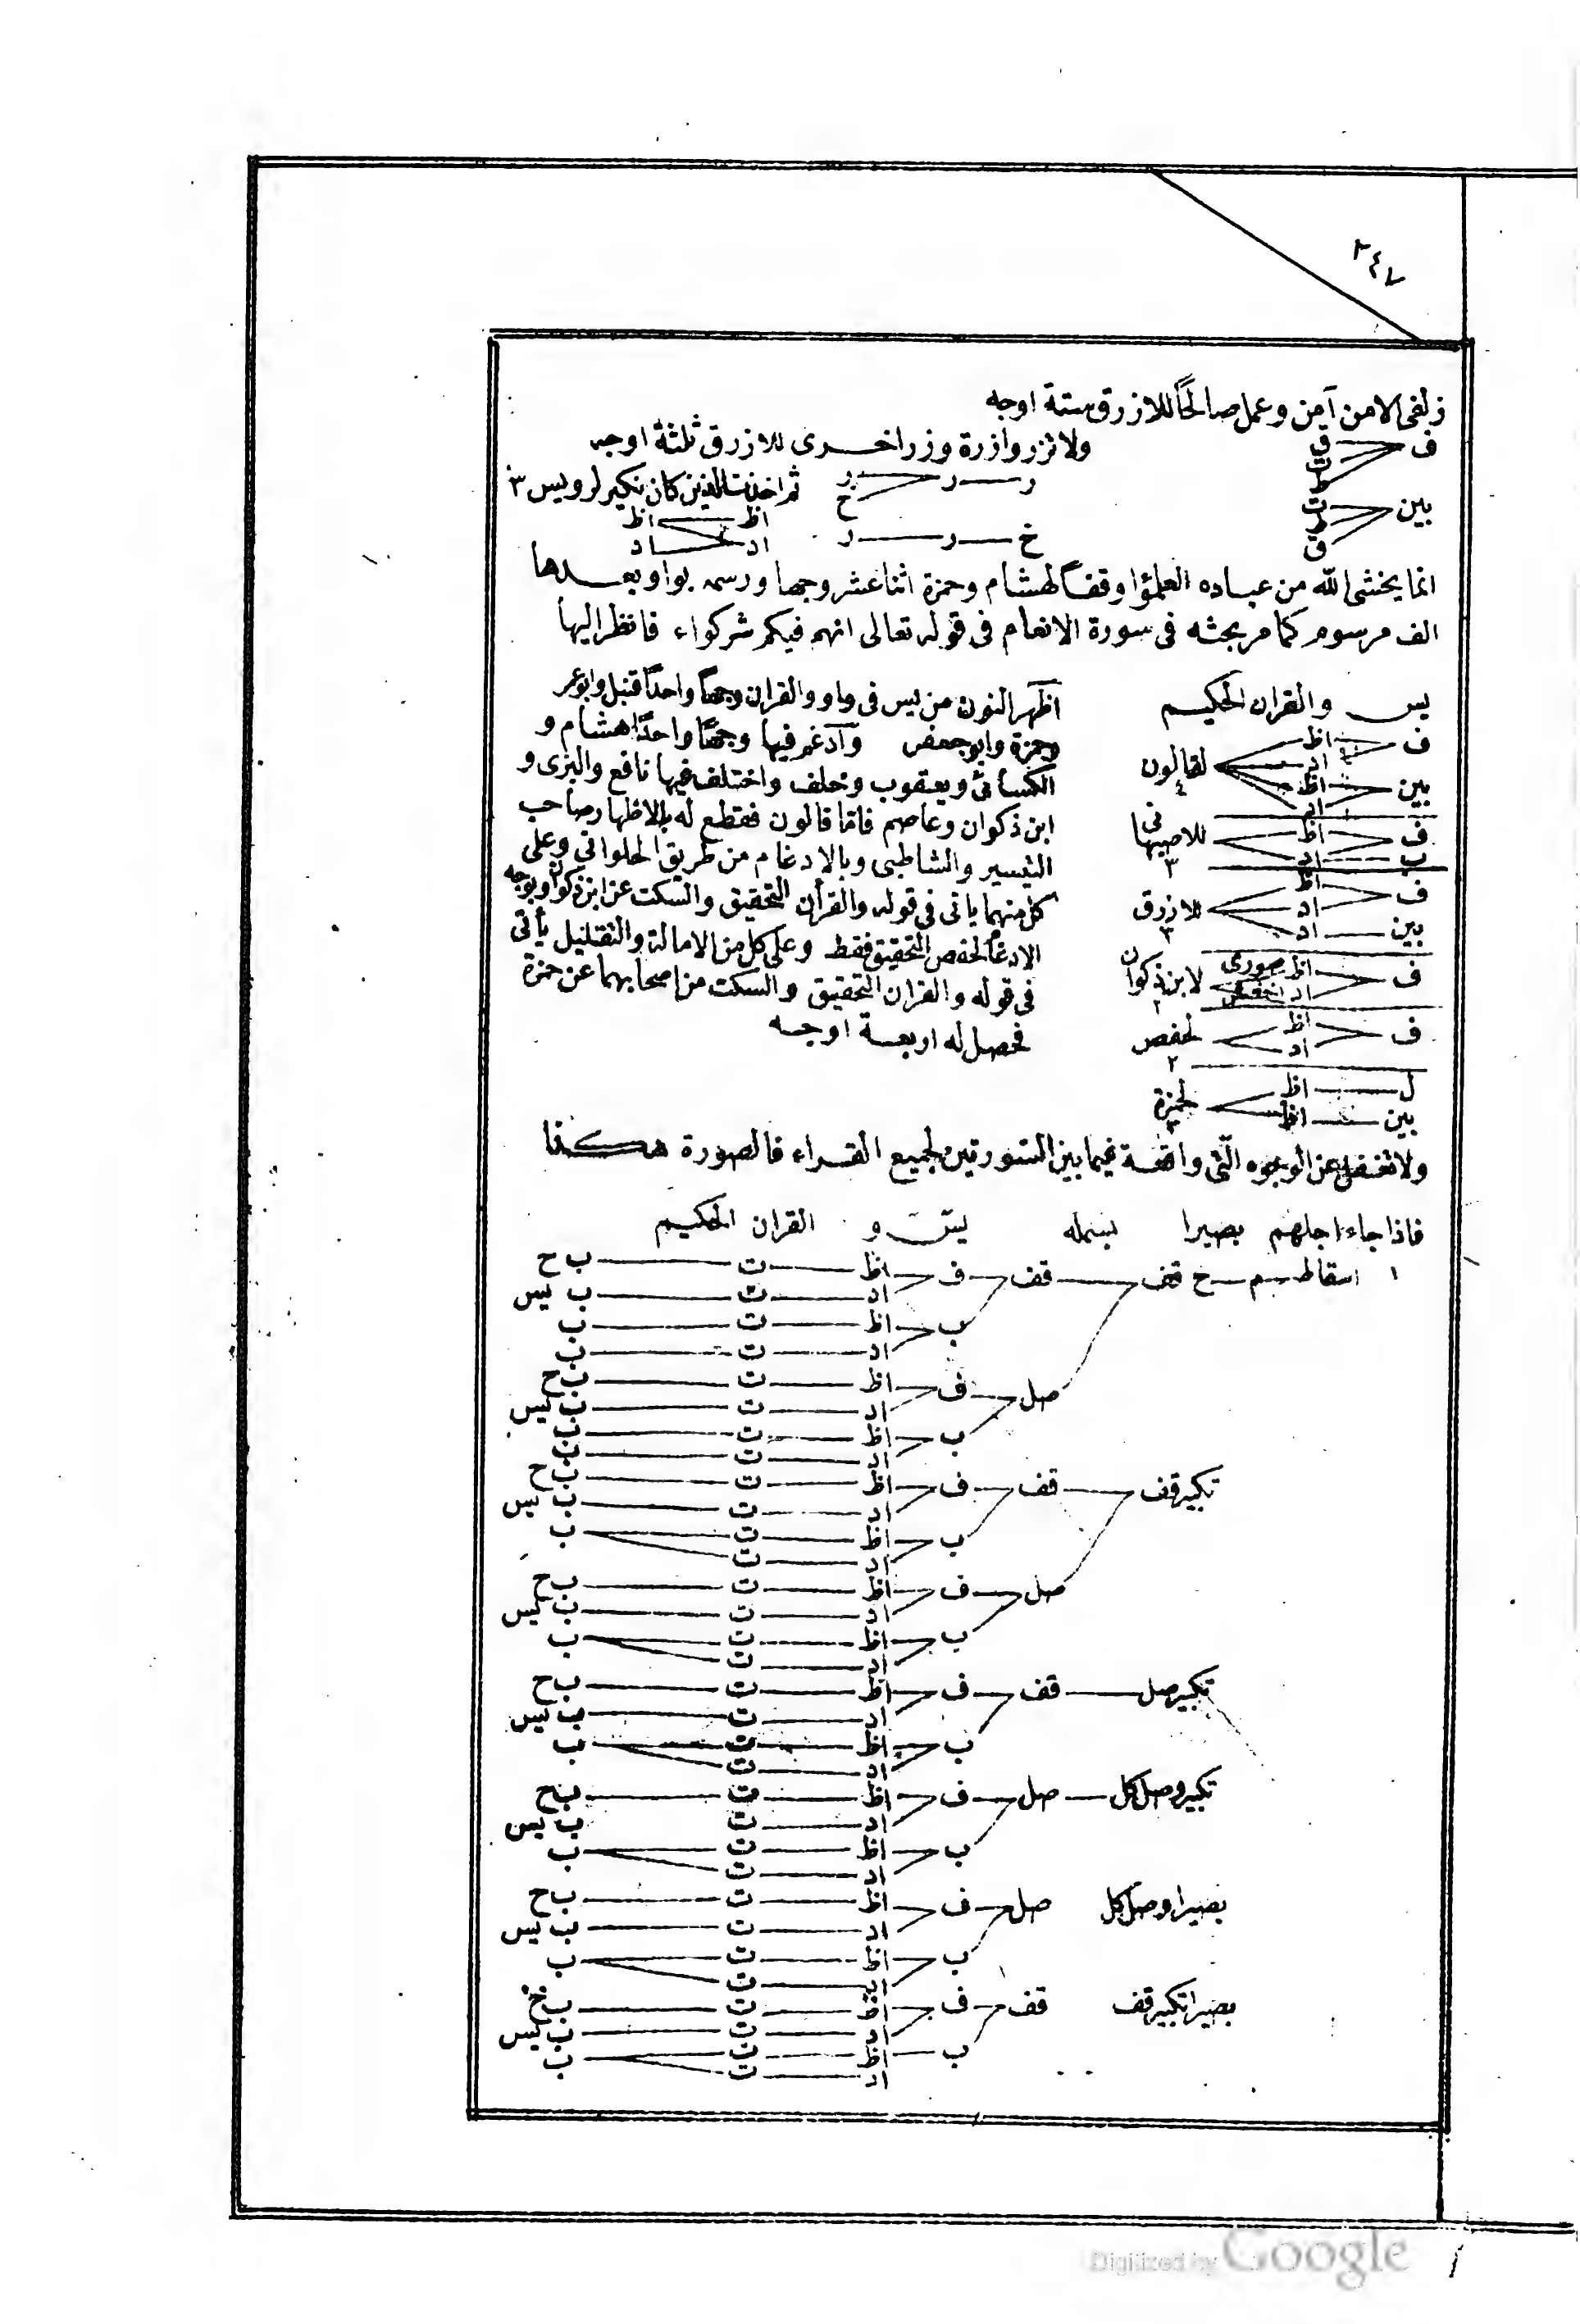 ٢٤٧
زلفى الا من آمن وعمل صالحًا للازرق ستة اوجه
ف ق
ت
ط
ولا تزر وازرة وزر اخرى للازرق ثلثة اوجه
بين ت
ط
ق
ر ر ر
خ
خ ر ر
ثم اخذت الذين كان نكير لرويس ٣
اظ اظ
اد اد
انما يخشى الله من عباده العلمؤا وقفًا لهشام وحمزة اثنا عشر وجها ورسمه بواو بعدها
الف مرسوم كما مر بحثه فى سورة الانعام فى قوله تعالى انهم فيكم شركواء فانظر اليها
يس والقران الحكيم
ف اظ
اد
بين اظ
اد
لقالون ٤
ف اظ
ب اد
للاصبهانى ٣
ف اظ
اد
بين اد
للازرق ٣
ف اظ صورى
اد اخفش
لابن ذكوان ٢
ف اظ
اد
لحفص ٢
ل اظ
بين اظ
لحمزة
اظهر النون من يس فى واو والقران وجهًا واحدًا قنبل وابو عمر
وحمزة وابو جعفر وآدغم فيها وجهًا واحدًا هشام و
الكسائى ويعقوب وخلف واختلف فيها نافع والبزى و
ابن ذكوان وعاصم فاما قالون فقطع له بالاظهار صاحب
التيسير والشاطبى وبالادغام من طريق الحلوانى وعلى
كل منهما ياتى فى قوله والقرأن التحقيق والسكت عن ابن ذكوان وبوجه
الادغام لحفص التحقيق فقط وعلى كل من الامالة والتقليل يأتى
فى قوله والقران التحقيق والسكت من اصحابهما عن حمزة
فحصل له اربعة اوجه
ولا تغفل عن الوجوه التى واقعة فيما بين السورتين لجميع القراء فالصورة هكذا
فاذا جاء اجلهم بصيرا بسمله يس و القران الحكيم
١ اسقاط م ح قف قف ف اظ ت ب ح
اد ت ب يس
ب اظ ت ب
اد ت ب
صل ف اظ ت ب ح
اد ت ب يس
ب اظ ت ب
اد ت ب
تكبير قف قف ف اظ ت ب ح
اد ت ب يس
ب اظ ت ب
اد ت
صل ف اظ ت ب ح
اد ت ب يس
ب اظ ت ب
اد ت
تكبير صل قف ف اظ ت ب ح
اد ت ب يس
ب اظ ت ب
اد ت
تكبير وصل كل صل ف اظ ت ب ح
اد ت ب يس
ب اظ ت ب
اد ت
بصيرا وصل كل صل ف اظ ت ب ح
اد ت ب يس
ب اظ ت ب
اد ت
بصيرا تكبير قف قف ف اظ ت ب ح
اد ت ب يس
ب اظ ت ب
اد ت
Digitized by Google